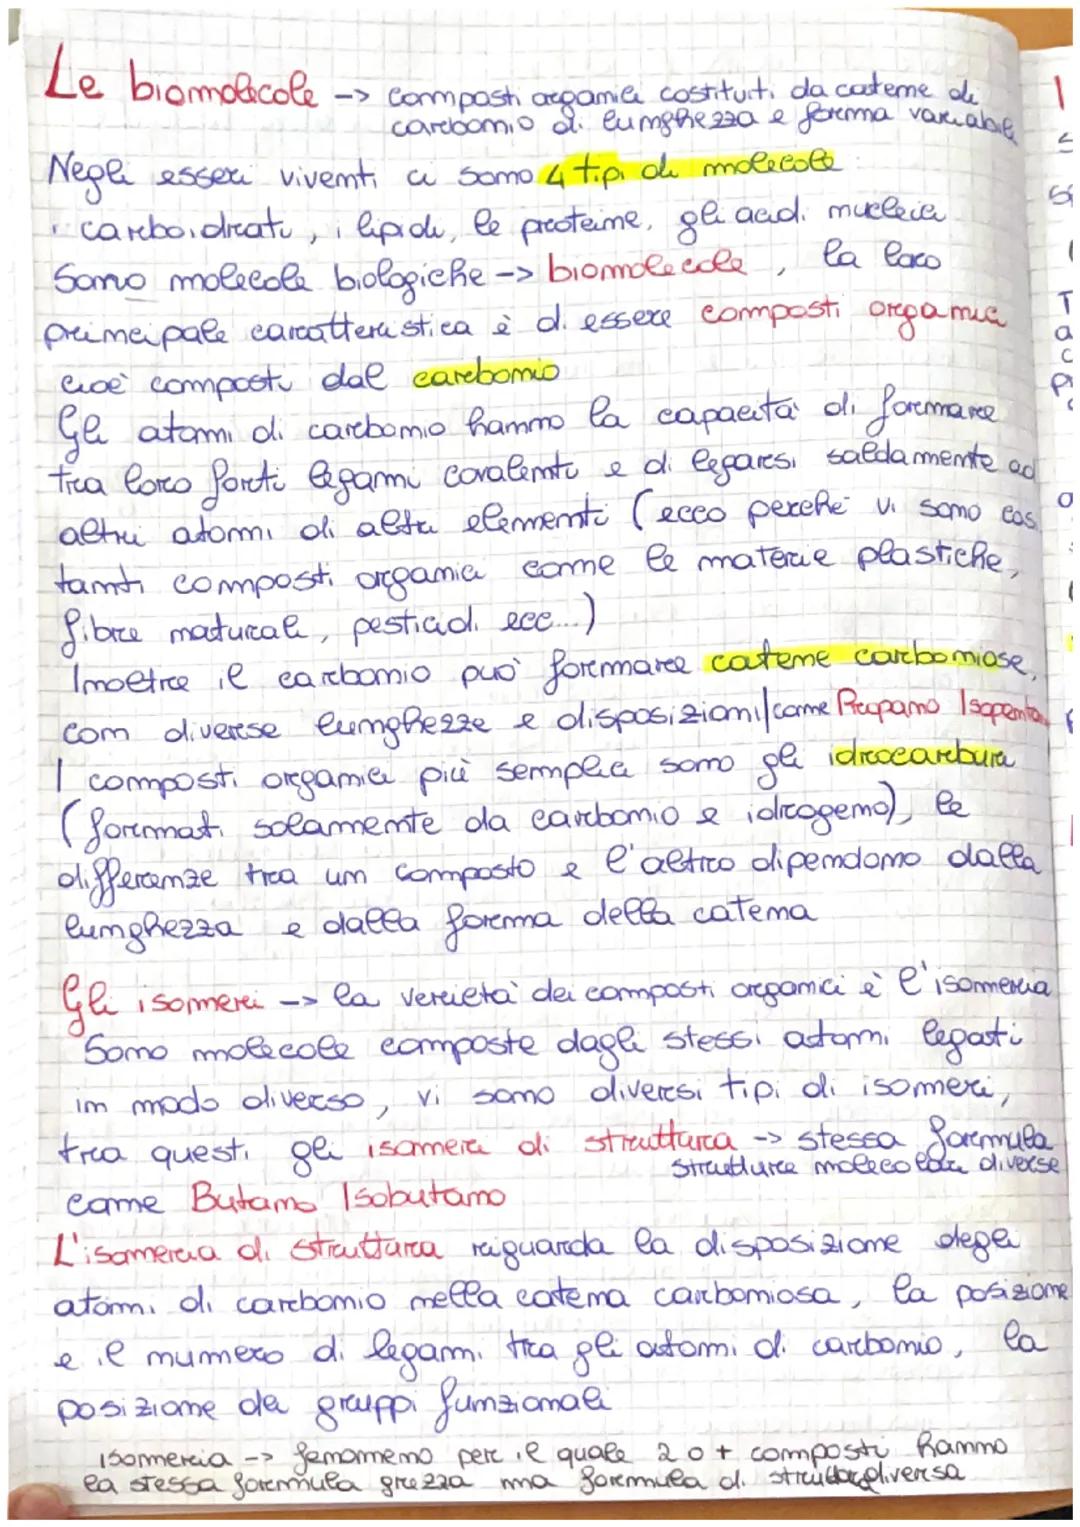 Le biomolecole -> composti organici costituiti da catene di
carbonio di lunghezza e forma variabile
Negli esseri viventi ci sono 4 tipi di molecole:
i carboidrati, i lipidi, le proteine, gli acidi nucleici
Sono molecole biologiche -> biomolecole, la loro
principale caratteristica è di essere composti organici
cioè composti dal carbonio
Gli atomi di carbonio hanno la capacità di formare
tra loro forti legami covalenti e di legarsi saldamente ad
altri atomi di altri elementi (ecco perché vi sono così
tanti composti organici come le materie plastiche,
fibre naturali, pesticidi ecc...)
Inoltre il carbonio può formare catene carboniose,
con diverse lunghezze e disposizioni/come Propano Isopentano
I composti organici più semplici sono gli idrocarburi
(formati solamente da carbonio e idrogeno), le
differenze tra un composto e l'altro dipendono dalla
lunghezza e dalla forma della catena
Gli isomeri -> la verietà dei composti organici è l'isomeria
Sono molecole composte dagli stessi atomi legati
in modo diverso, vi sono diversi tipi di isomeri,
tra questi gli isomeri di struttura -> stessa formula
strutture molecolari diverse
come Butano Isobutano
L'isomeria di struttura riguarda la disposizione degli
atomi di carbonio nella catena carboniosa, la posizione
e il numero di legami tra gli atomi di carbonio, la
posizione dei gruppi funzionali
isomeria -> fenomeno per il quale 2 o + composti hanno
la stessa formula grezza ma formula di struttura diversa